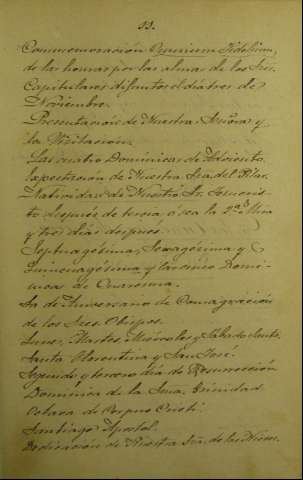 33.
Conmemoración Omnium Fidelium,
de las honras por las almas de los Sres.
Capitulares difuntos el día tres de
Noviembre.
Presentación de Nuestra Señora y
la Visitación.
Las cuatro Domínicas de Adviento.
Expectación de Nuestra Sra. del Pilar.
Natividad de Nuestro Sr. Jesucris-
to después de tercia, o sea la 2ª Misa
y tres días después.
Septuagésima, Sexagésima y
Quincuagésima y las cinco Domí-
nicas de Cuaresma.
La de Aniversario de Consagración
de los Sres. Obispos.
Lunes, Martes, Miércoles y Sábado Santo.
Santa Florentina y San José.
Segundo y tercero día de Resurrección
Domínica de la Sma. Trinidad
Octava de Corpus Cristi.
Santiago Apostol.
Dedicación de Nuestra Sra. de las Nieves.